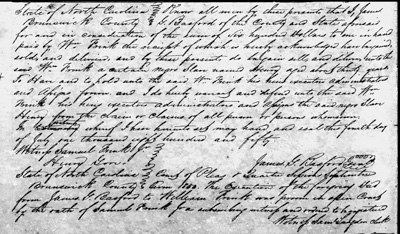 State of North Carolina } Know all men by these presents that I James
Brunswick County } G. Basford of the County and State aforesaid
for and in consideration of the sum of Six hundred Dollars to me in hand
paid by Wm. Frink the receipt of which is hereby acknowledged have bargained
sold and delivered, and by these presents do bargain sell and deliver unto the said
Wm. Frink a certain negro Slave named Henry aged about thirty years
To Have and to hold the said Wm. Frink his heirs executors administrators
and assigns forever and I do hereby warrant and defend unto the said Wm
Frink his heirs executors administrators and assigns the said negro Slave
Henry from the claim or claims of all person or persons whomsoever
In testimony whereof I have hereunto set my hand and seal this fourth day
of July one thousand eight hundred and fifty
Witness Samuel Frink
Henry James G. Basford
State of North Carolina } Court of Pleas & Quarter Session September
Brunswick County } Term 1850 The Execution of the foregoing Deed
from James G. Basford to William Frink was proven in open Court
by the oath of Samuel Frink the subscribing witness and ordered to be registered
Witness Saml Langdon Clk